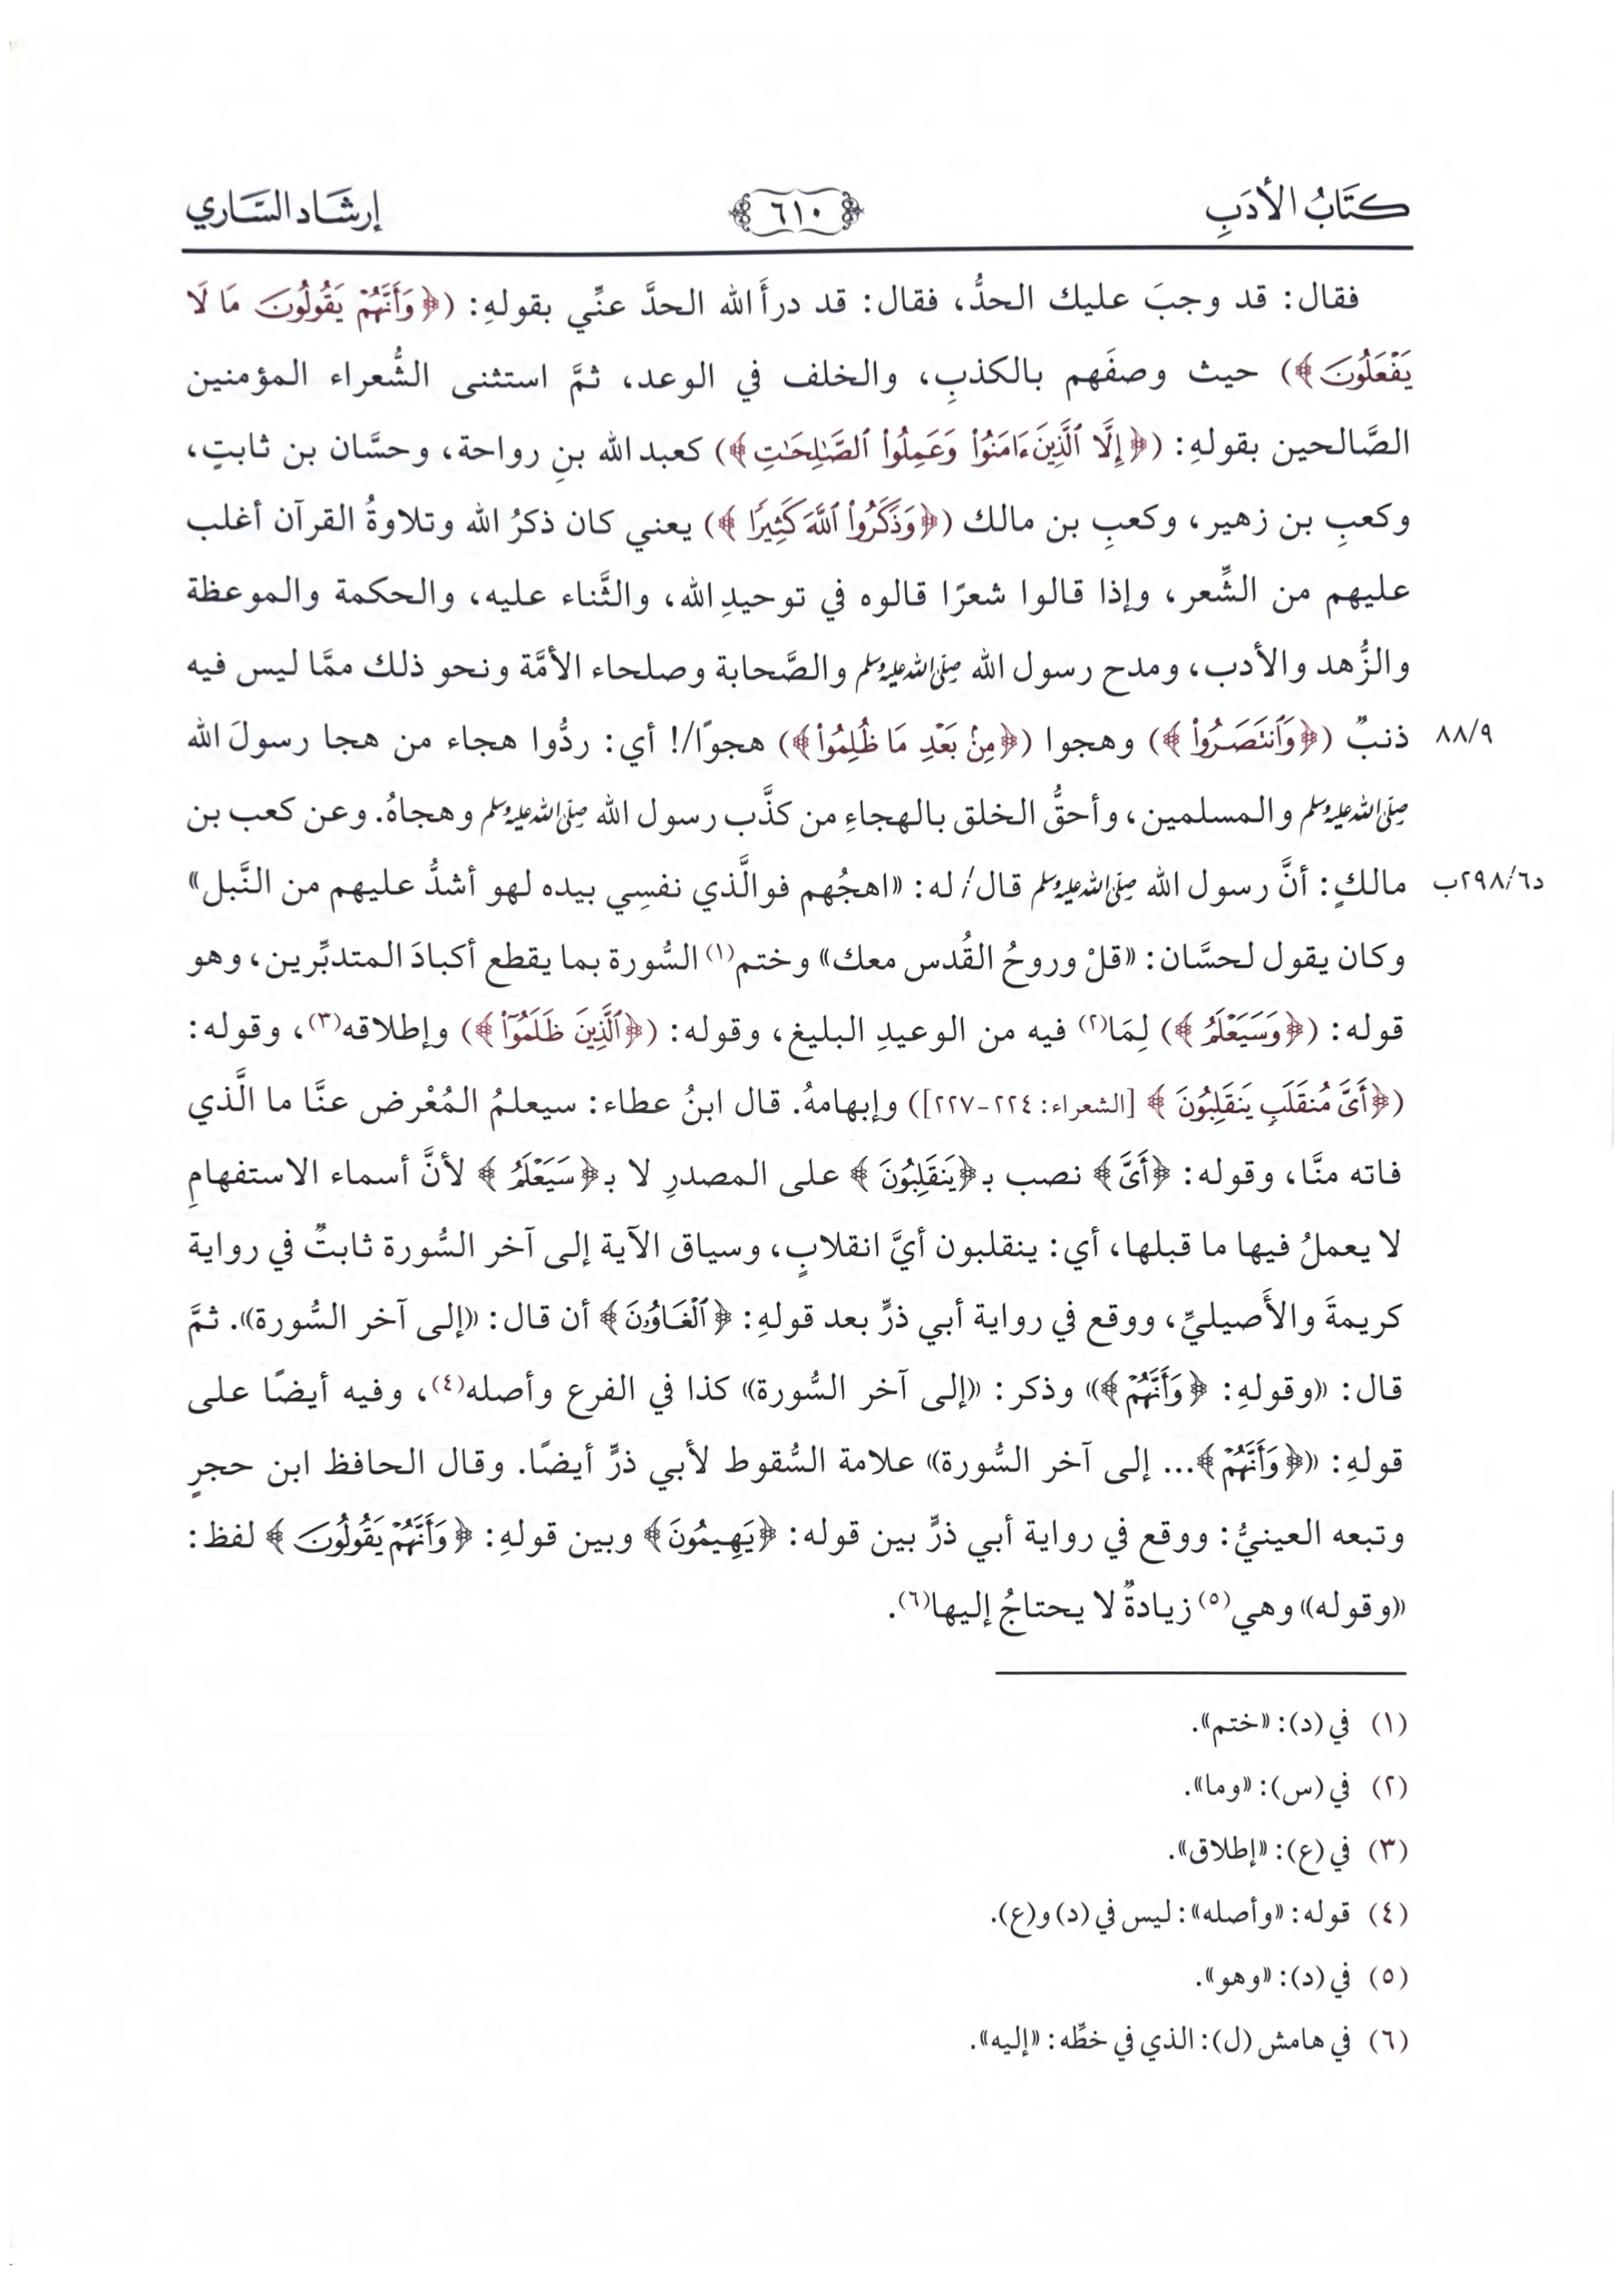 كتَابُ الأدَبِ
٦١٠
إرشَاد السَّاري
فقال: قد وجبَ عليك الحدُّ، فقال: قد درأَ الله الحدَّ عنِّي بقولهِ: (﴿وَأَنَّهُمْ يَقُولُونَ مَا لَا
يَفْعَلُونَ﴾) حيث وصفَهم بالكذبِ، والخلف في الوعد، ثمَّ استثنى الشُّعراء المؤمنين
الصَّالحين بقولهِ: (﴿إِلَّا ٱلَّذِينَ ءَامَنُوا۟ وَعَمِلُوا۟ ٱلصَّٰلِحَٰتِ﴾) كعبد الله بنِ رواحة، وحسَّان بن ثابتٍ،
وكعبِ بن زهير، وكعبِ بن مالك (﴿وَذَكَرُوا۟ ٱللَّهَ كَثِيرًا﴾) يعني كان ذكرُ الله وتلاوةُ القرآن أغلب
عليهم من الشِّعر، وإذا قالوا شعرًا قالوه في توحيدِ الله، والثَّناء عليه، والحكمة والموعظة
والزُّهد والأدب، ومدح رسول الله صلى الله عليه وسلم والصَّحابة وصلحاء الأمَّة ونحو ذلك ممَّا ليس فيه
ذنبٌ (﴿وَٱنتَصَرُوا۟﴾) وهجوا (﴿مِنۢ بَعْدِ مَا ظُلِمُوا۟﴾) هجوًا/! أي: ردُّوا هجاء من هجا رسولَ الله
٨٨/٩
صلى الله عليه وسلم والمسلمين، وأحقُّ الخلق بالهجاءِ من كذَّب رسول الله صلى الله عليه وسلم وهجاهُ. وعن كعب بن
مالكٍ: أنَّ رسول الله صلى الله عليه وسلم قال/ له: «اهجُهم فوالَّذي نفسِي بيده لهو أشدُّ عليهم من النَّبل»
د٢٩٨/٦ب
وكان يقول لحسَّان: «قلْ وروحُ القُدس معك» وختم(١) السُّورة بما يقطع أكبادَ المتدبِّرين، وهو
قوله: (﴿وَسَيَعْلَمُ﴾) لِمَا(٢) فيه من الوعيدِ البليغ، وقوله: (﴿ٱلَّذِينَ ظَلَمُوٓا۟﴾) وإطلاقه(٣)، وقوله:
(﴿أَىَّ مُنقَلَبٍ يَنقَلِبُونَ﴾ [الشعراء: ٢٢٤-٢٢٧]) وإبهامهُ. قال ابنُ عطاء: سيعلمُ المُعْرض عنَّا ما الَّذي
فاته منَّا، وقوله: ﴿أَىَّ﴾ نصب بـ﴿يَنقَلِبُونَ﴾ على المصدرِ لا بـ﴿سَيَعْلَمُ﴾ لأنَّ أسماء الاستفهامِ
لا يعملُ فيها ما قبلها، أي: ينقلبون أيَّ انقلابٍ، وسياق الآية إلى آخر السُّورة ثابتٌ في رواية
كريمةَ والأَصيليِّ، ووقع في رواية أبي ذرٍّ بعد قولهِ: ﴿ٱلْغَاوُۥنَ﴾ أن قال: «إلى آخر السُّورة». ثمَّ
قال: «وقولهِ: ﴿وَأَنَّهُمْ﴾» وذكر: «إلى آخر السُّورة» كذا في الفرع وأصله(٤)، وفيه أيضًا على
قولهِ: «﴿وَأَنَّهُمْ﴾... إلى آخر السُّورة» علامة السُّقوط لأبي ذرٍّ أيضًا. وقال الحافظ ابن حجرٍ
وتبعه العينيُّ: ووقع في رواية أبي ذرٍّ بين قوله: ﴿يَهِيمُونَ﴾ وبين قولهِ: ﴿وَأَنَّهُمْ يَقُولُونَ﴾ لفظ:
«وقوله» وهي(٥) زيادةٌ لا يحتاجُ إليها(٦).
(١) في (د): «ختم».
(٢) في (س): «وما».
(٣) في (ع): «إطلاق».
(٤) قوله: «وأصله»: ليس في (د) و(ع).
(٥) في (د): «وهو».
(٦) في هامش (ل): الذي في خطِّه: «إليه».